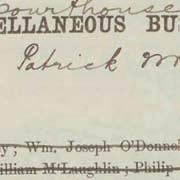 courthouse
ELLANEOUS BU
Patrick
y; Wm. Joseph O'Donnel
illiam McLaughlin; Philip